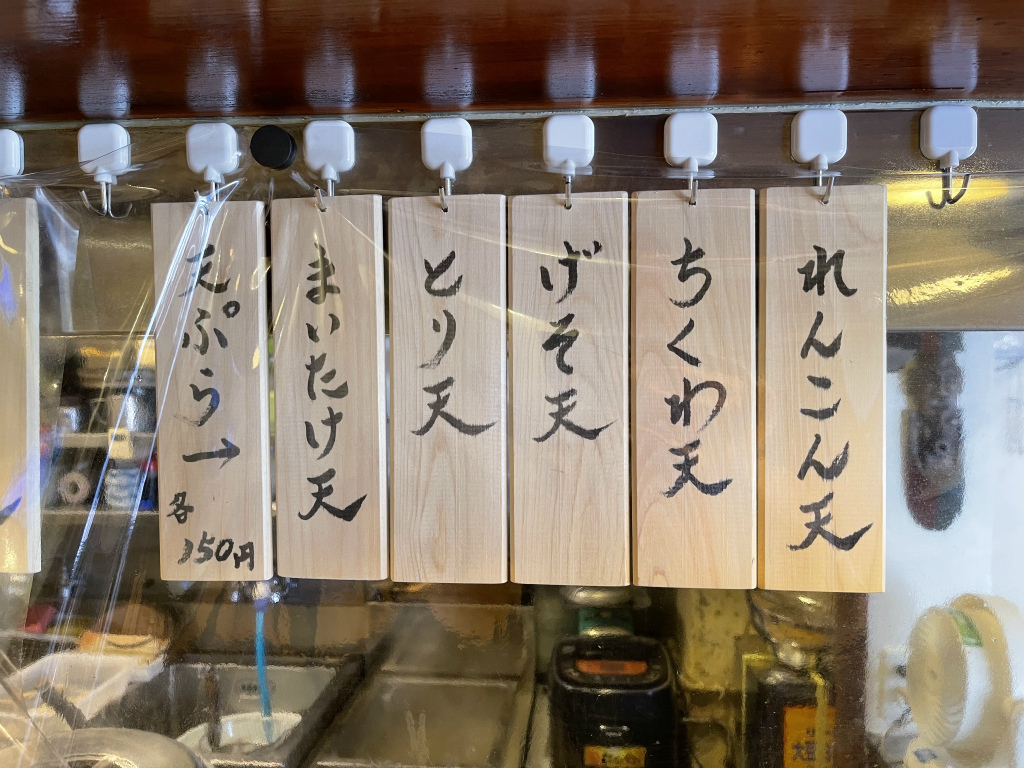 天ぷら→
各
150円
まいたけ天
とり天
げそ天
ちくわ天
れんこん天